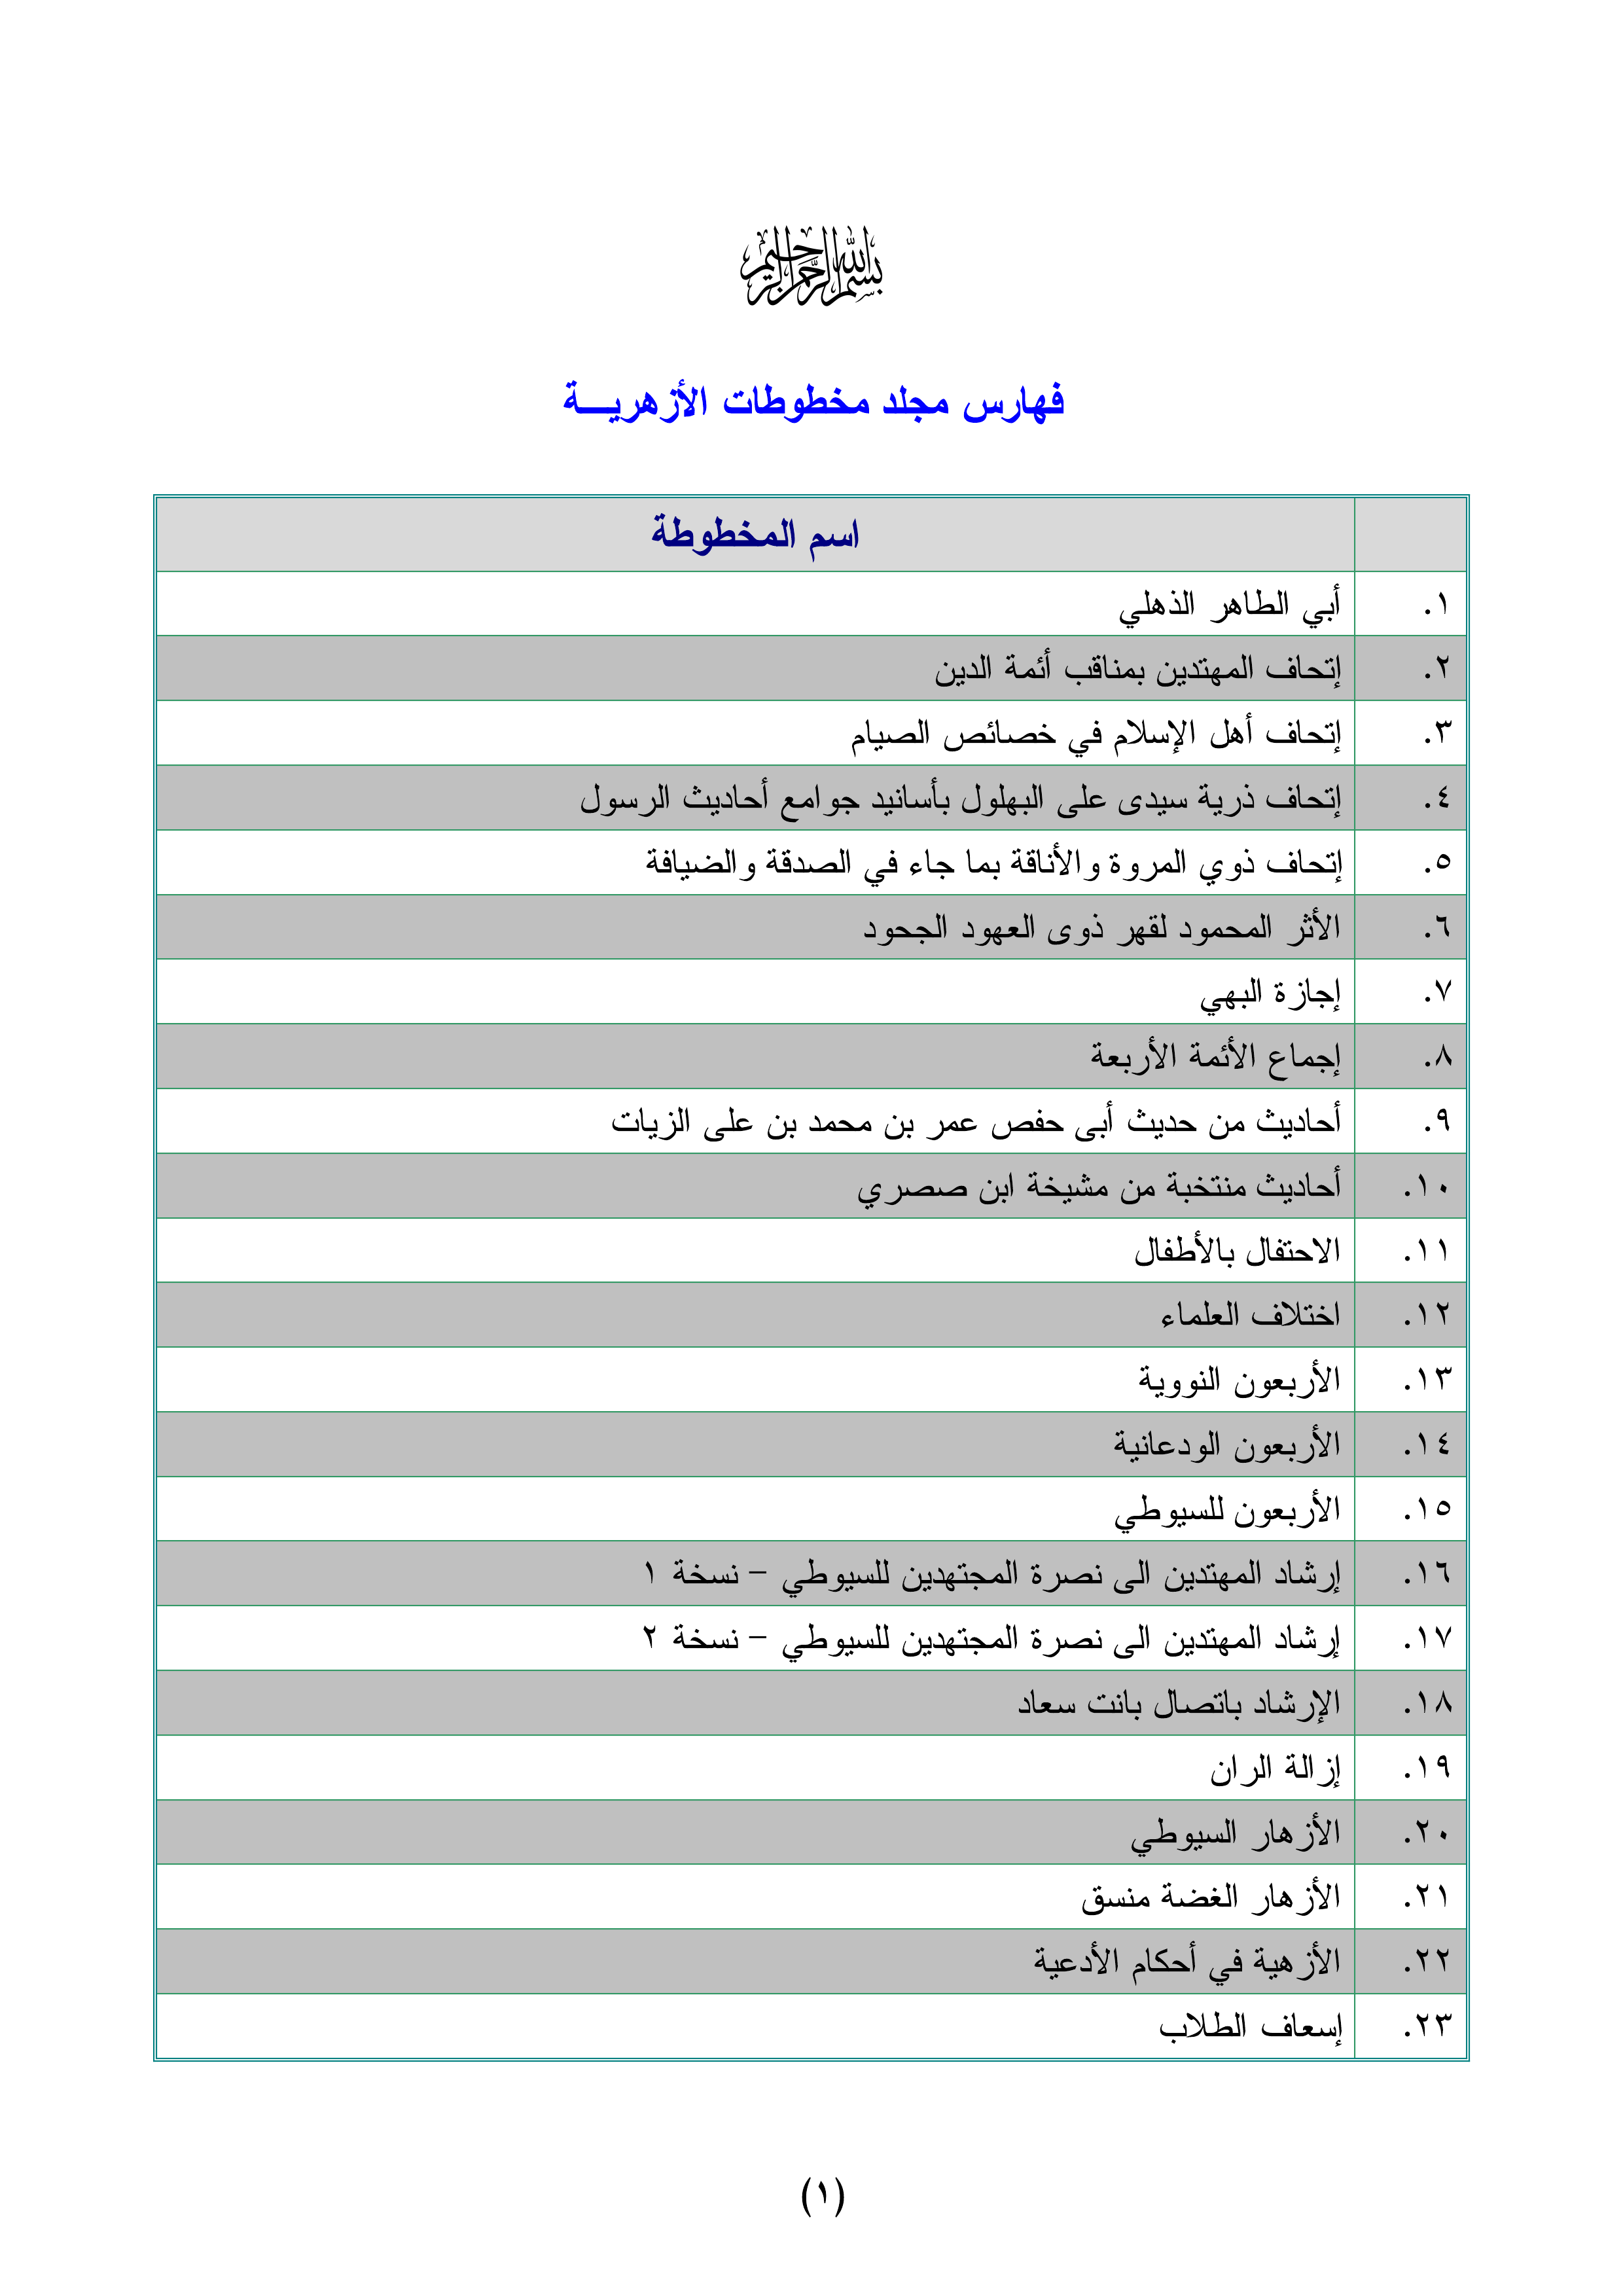 بسم الله الرحمن الرحيم
فهارس مجلد مخطوطات الأزهريـــة
اسم المخطوطة
١. أبي الطاهر الذهلي
٢. إتحاف المهتدين بمناقب أئمة الدين
٣. إتحاف أهل الإسلام في خصائص الصيام
٤. إتحاف ذرية سيدى على البهلول بأسانيد جوامع أحاديث الرسول
٥. إتحاف ذوي المروة والأناقة بما جاء في الصدقة والضيافة
٦. الأثر المحمود لقهر ذوى العهود الجحود
٧. إجازة البهي
٨. إجماع الأئمة الأربعة
٩. أحاديث من حديث أبى حفص عمر بن محمد بن على الزيات
١٠. أحاديث منتخبة من مشيخة ابن صصري
١١. الاحتفال بالأطفال
١٢. اختلاف العلماء
١٣. الأربعون النووية
١٤. الأربعون الودعانية
١٥. الأربعون للسيوطي
١٦. إرشاد المهتدين الى نصرة المجتهدين للسيوطي – نسخة ١
١٧. إرشاد المهتدين الى نصرة المجتهدين للسيوطي – نسخة ٢
١٨. الإرشاد باتصال بانت سعاد
١٩. إزالة الران
٢٠. الأزهار السيوطي
٢١. الأزهار الغضة منسق
٢٢. الأزهية في أحكام الأدعية
٢٣. إسعاف الطلاب
(١)